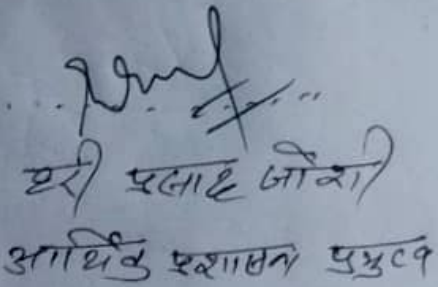 हरी प्रसाद जोशी
आर्थिक प्रशासन प्रमुख